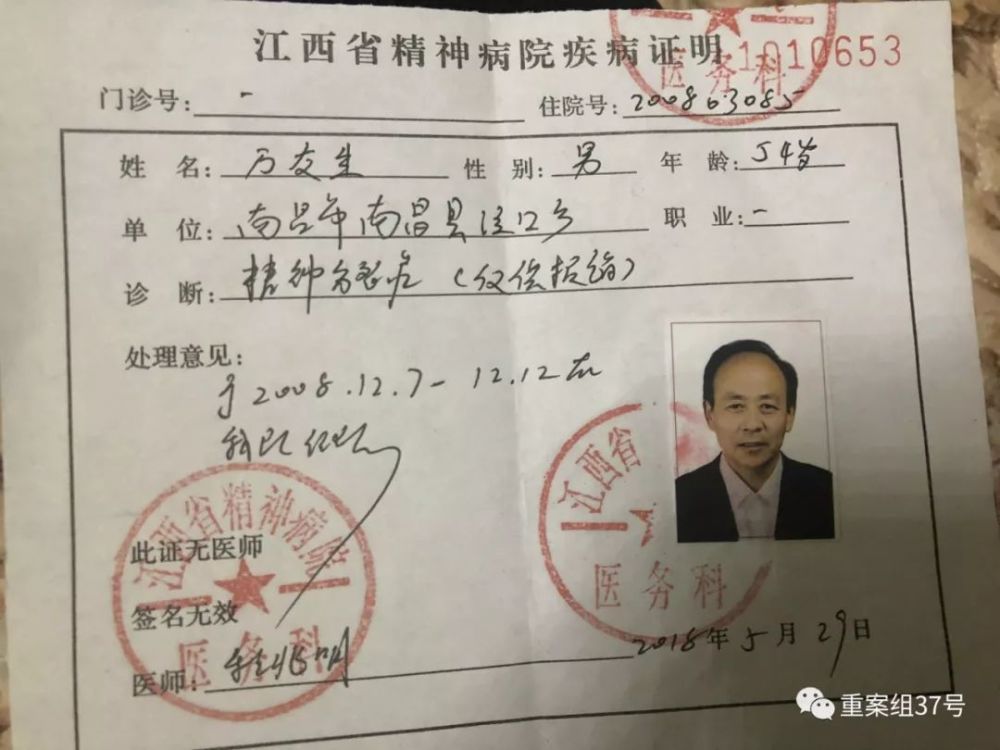 江西省精神病院疾病证明
1010653
医务科
门诊号: -
住院号: 200863085
姓 名: 万友生 性 别: 男 年 龄: 54岁
单 位: 南昌市南昌县泾口乡 职业: 一
诊 断: 精神分裂症（仅供报销）
处理意见:
于2008.12.7-12.12在
我院住院
江西省精神病院
医务科
此证无医师
签名无效
江西省
医务科
医师:
2018年5月29日
重案组37号